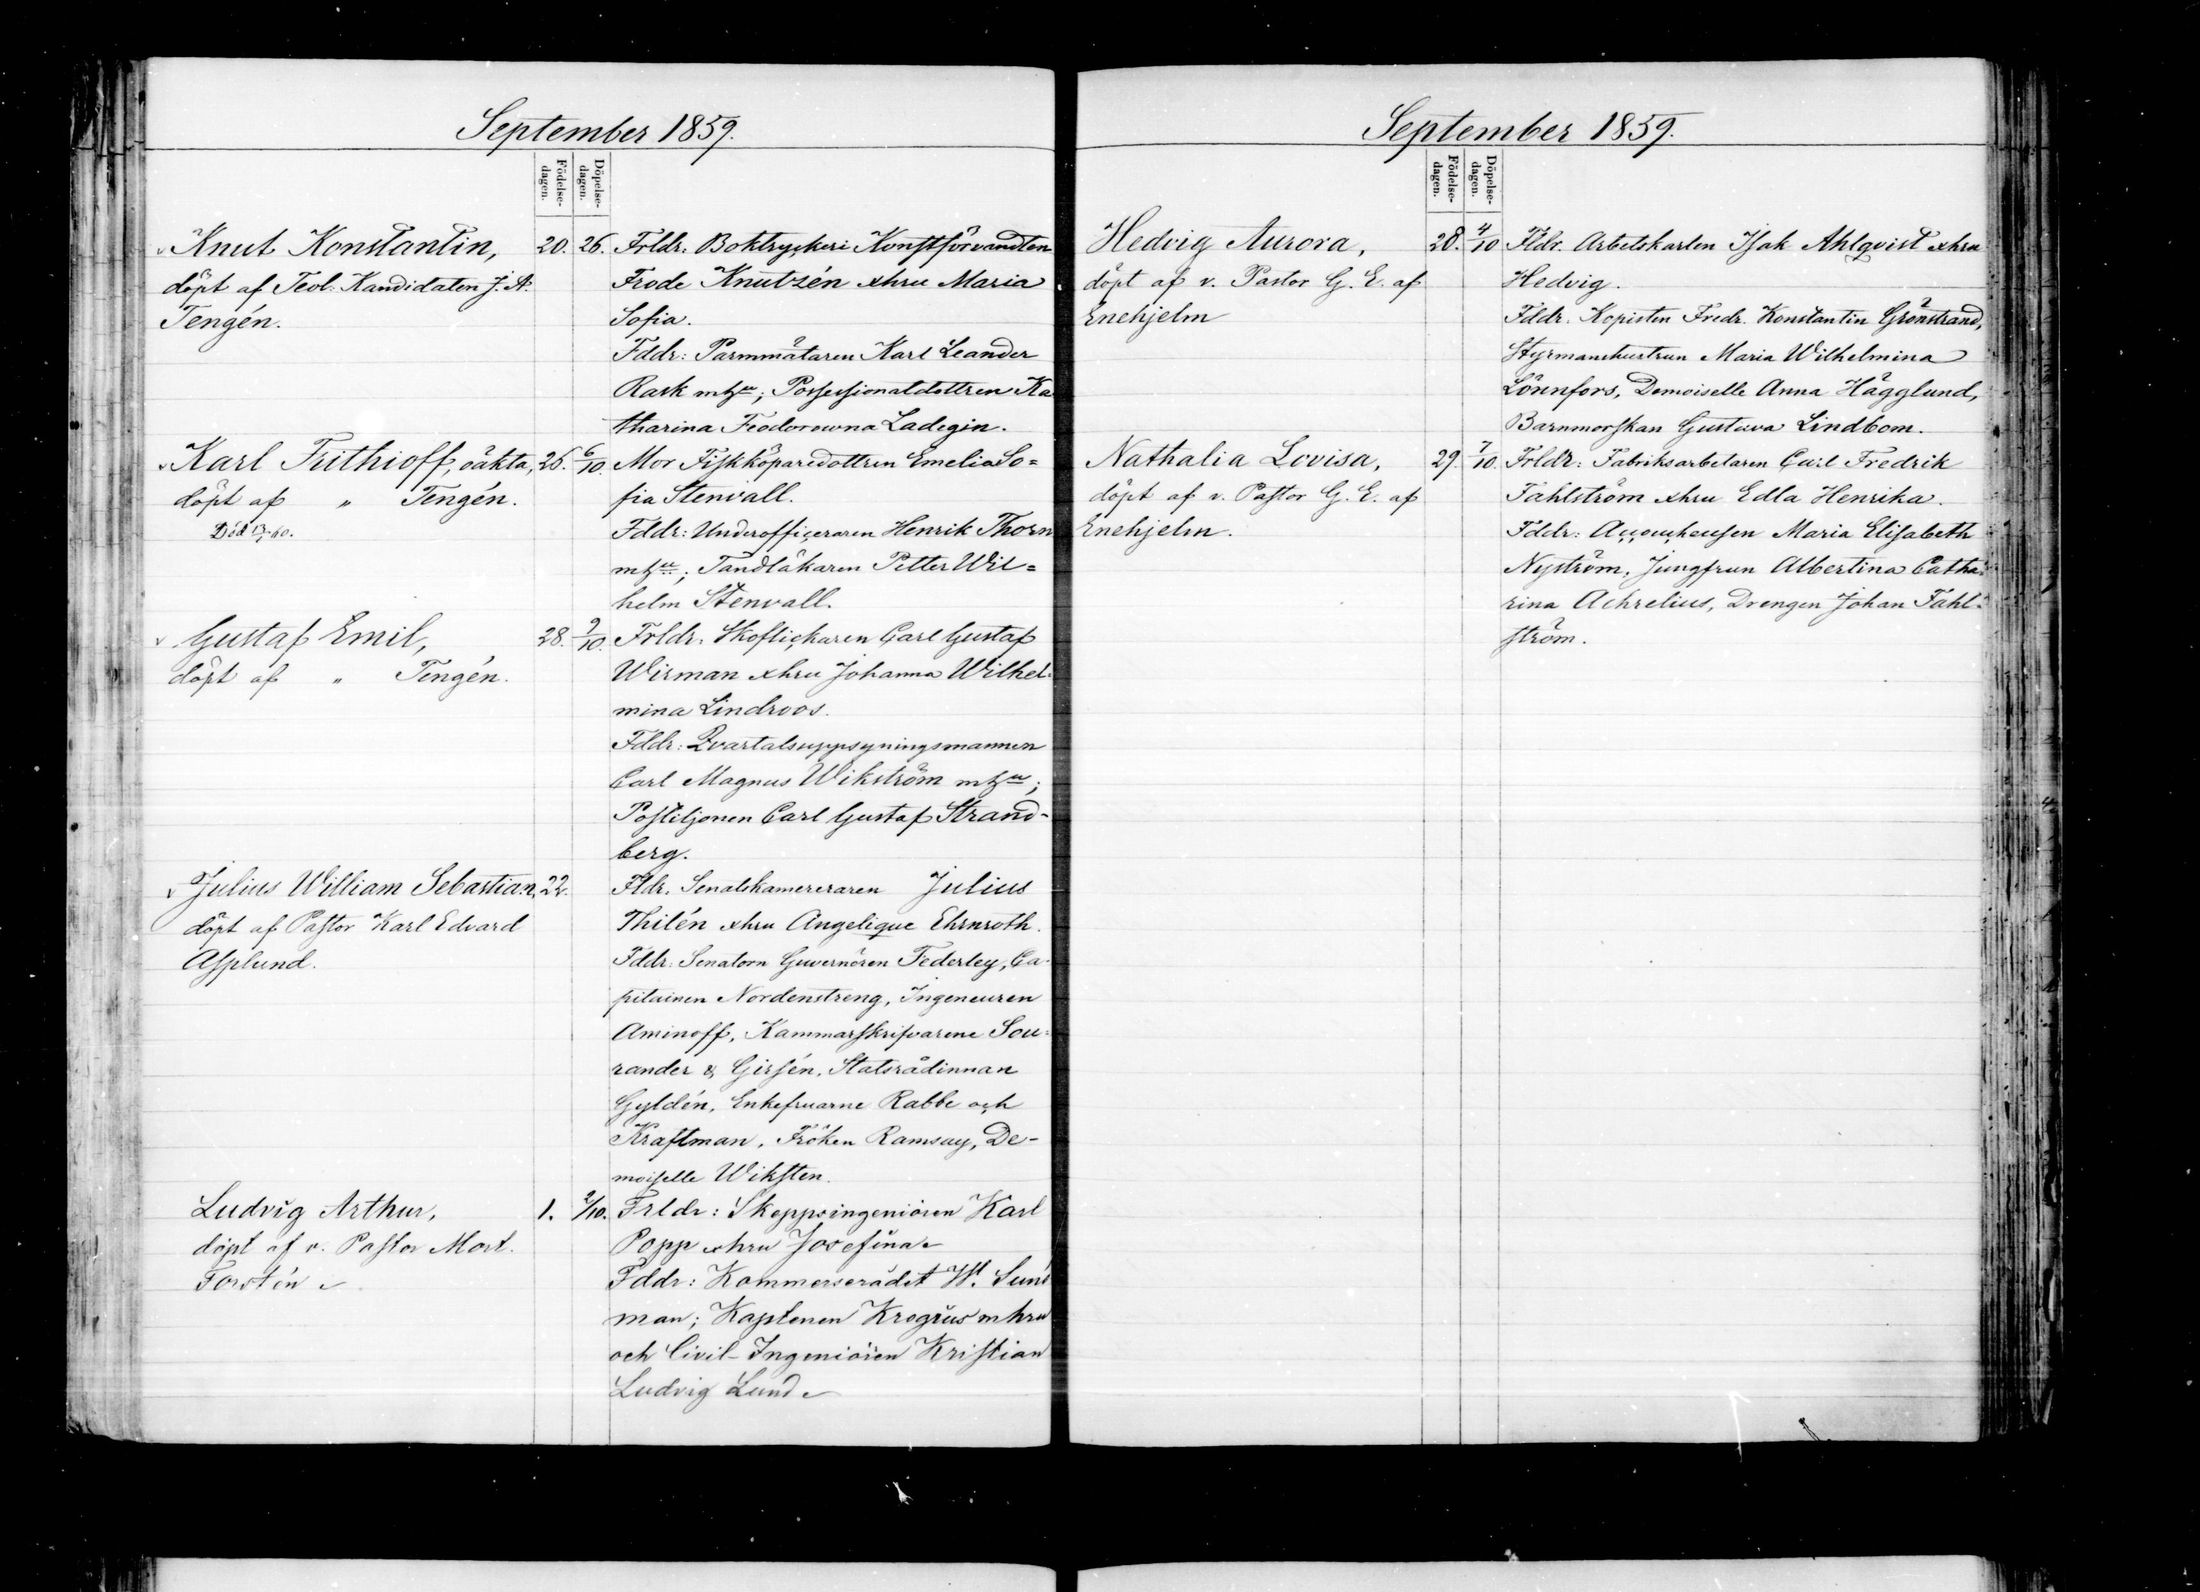 September 1859.
Födelse-
dagen.
Döpelse-
dagen.
Knut Konstantin,
döpt af Teol. Kandidaten J. A.
Tengén.
20. 26.
Frldr: Boktryckeri Konstförvandten
Frode Knutzén & hru Maria
Sofia.
Fddr: Parmmätaren Karl Leander
Rask m h u; Possessionatdottren Ka
tharina Feodorowna Ladegin.
Karl Frithioff, oäkta,
döpt af " Tengén.
Död 13/ 60.
26. 6/10
Mor Fiskköparedottren Emelia So=
fia Stenvall.
Fddr: Underofficeraren Henrik Thorn
m h u; Tandläkaren Petter Wil=
helm Stenvall.
Gustaf Emil,
döpt af " Tengén.
28. 9/10.
Frldr: Skoflickaren Carl Gustaf
Wirman & hru Johanna Wilhel=
mina Lindroos.
Fddr: Qvartalsuppsyningsmannen
Carl Magnus Wikström m h u;
Postiljonen Carl Gustaf Strand-
berg.
Julius William Sebastian,
döpt af Pastor Karl Edvard
Asplund.
22.
Fldr. Senatskamereraren Julius
Thilén & hru Angelique Ehrnroth.
Fddr: Senatorn Guvernören Federley, Ca-
pitainen Nordenstreng, Ingeneuren
Aminoff, Kammarskrifvarene Sou=
rander & Girsén, Statsrådinnan
Gyldén, Enkefruarne Rabbe och
Kraftman, Fröken Ramsay, De-
moiselle Wiksten.
Ludvig Arthur,
döpt af v. Pastor Mort.
Forstén
1. 2/10.
Frldr: Skeppsingeniören Karl
Popp & hru Josefina
Fddr: Kommerserådet W. Sund
man; Kaptenen Krogius m hru
och Civil-Ingeniören Kristian
Ludvig Lund
September 1859.
Födelse-
dagen.
Döpelse-
dagen.
Hedvig Aurora,
döpt af v. Pastor G. E. af
Enehjelm
28. 4/10
Fldr. Arbetskarlen Isak Ahlqvist & hru
Hedvig.
Fddr. Kopisten Fredr. Konstantin Grönstrand,
Styrmanshustrun Maria Wilhelmina
Lönnfors, Demoiselle Anna Hägglund,
Barnmorskan Gustava Lindbom.
Nathalia Lovisa,
döpt af v. Pastor G. E. af
Enehjelm.
29. 7/10.
Frldr: Fabriksarbetaren Carl Fredrik
Fahlström & hru Edla Henrika.
Fddr: Accoucheusen Maria Elisabeth
Nyström, Jungfrun Albertina Catha=
rina Achrelius, Drengen Johan Fahl=
ström.